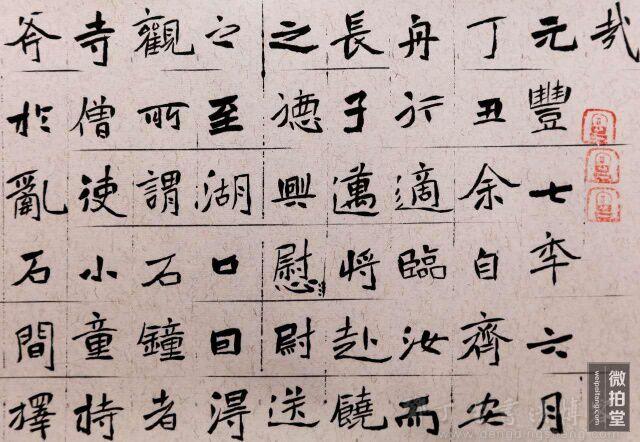 哉
元豐七年六月
丁丑余自齊安
舟行適臨汝而
長子邁將赴饒
之德興慰尉送
之至湖口囙得
觀所謂石鐘者
寺僧使小童持
斧於亂石間擇
微拍堂
weipaitang.com